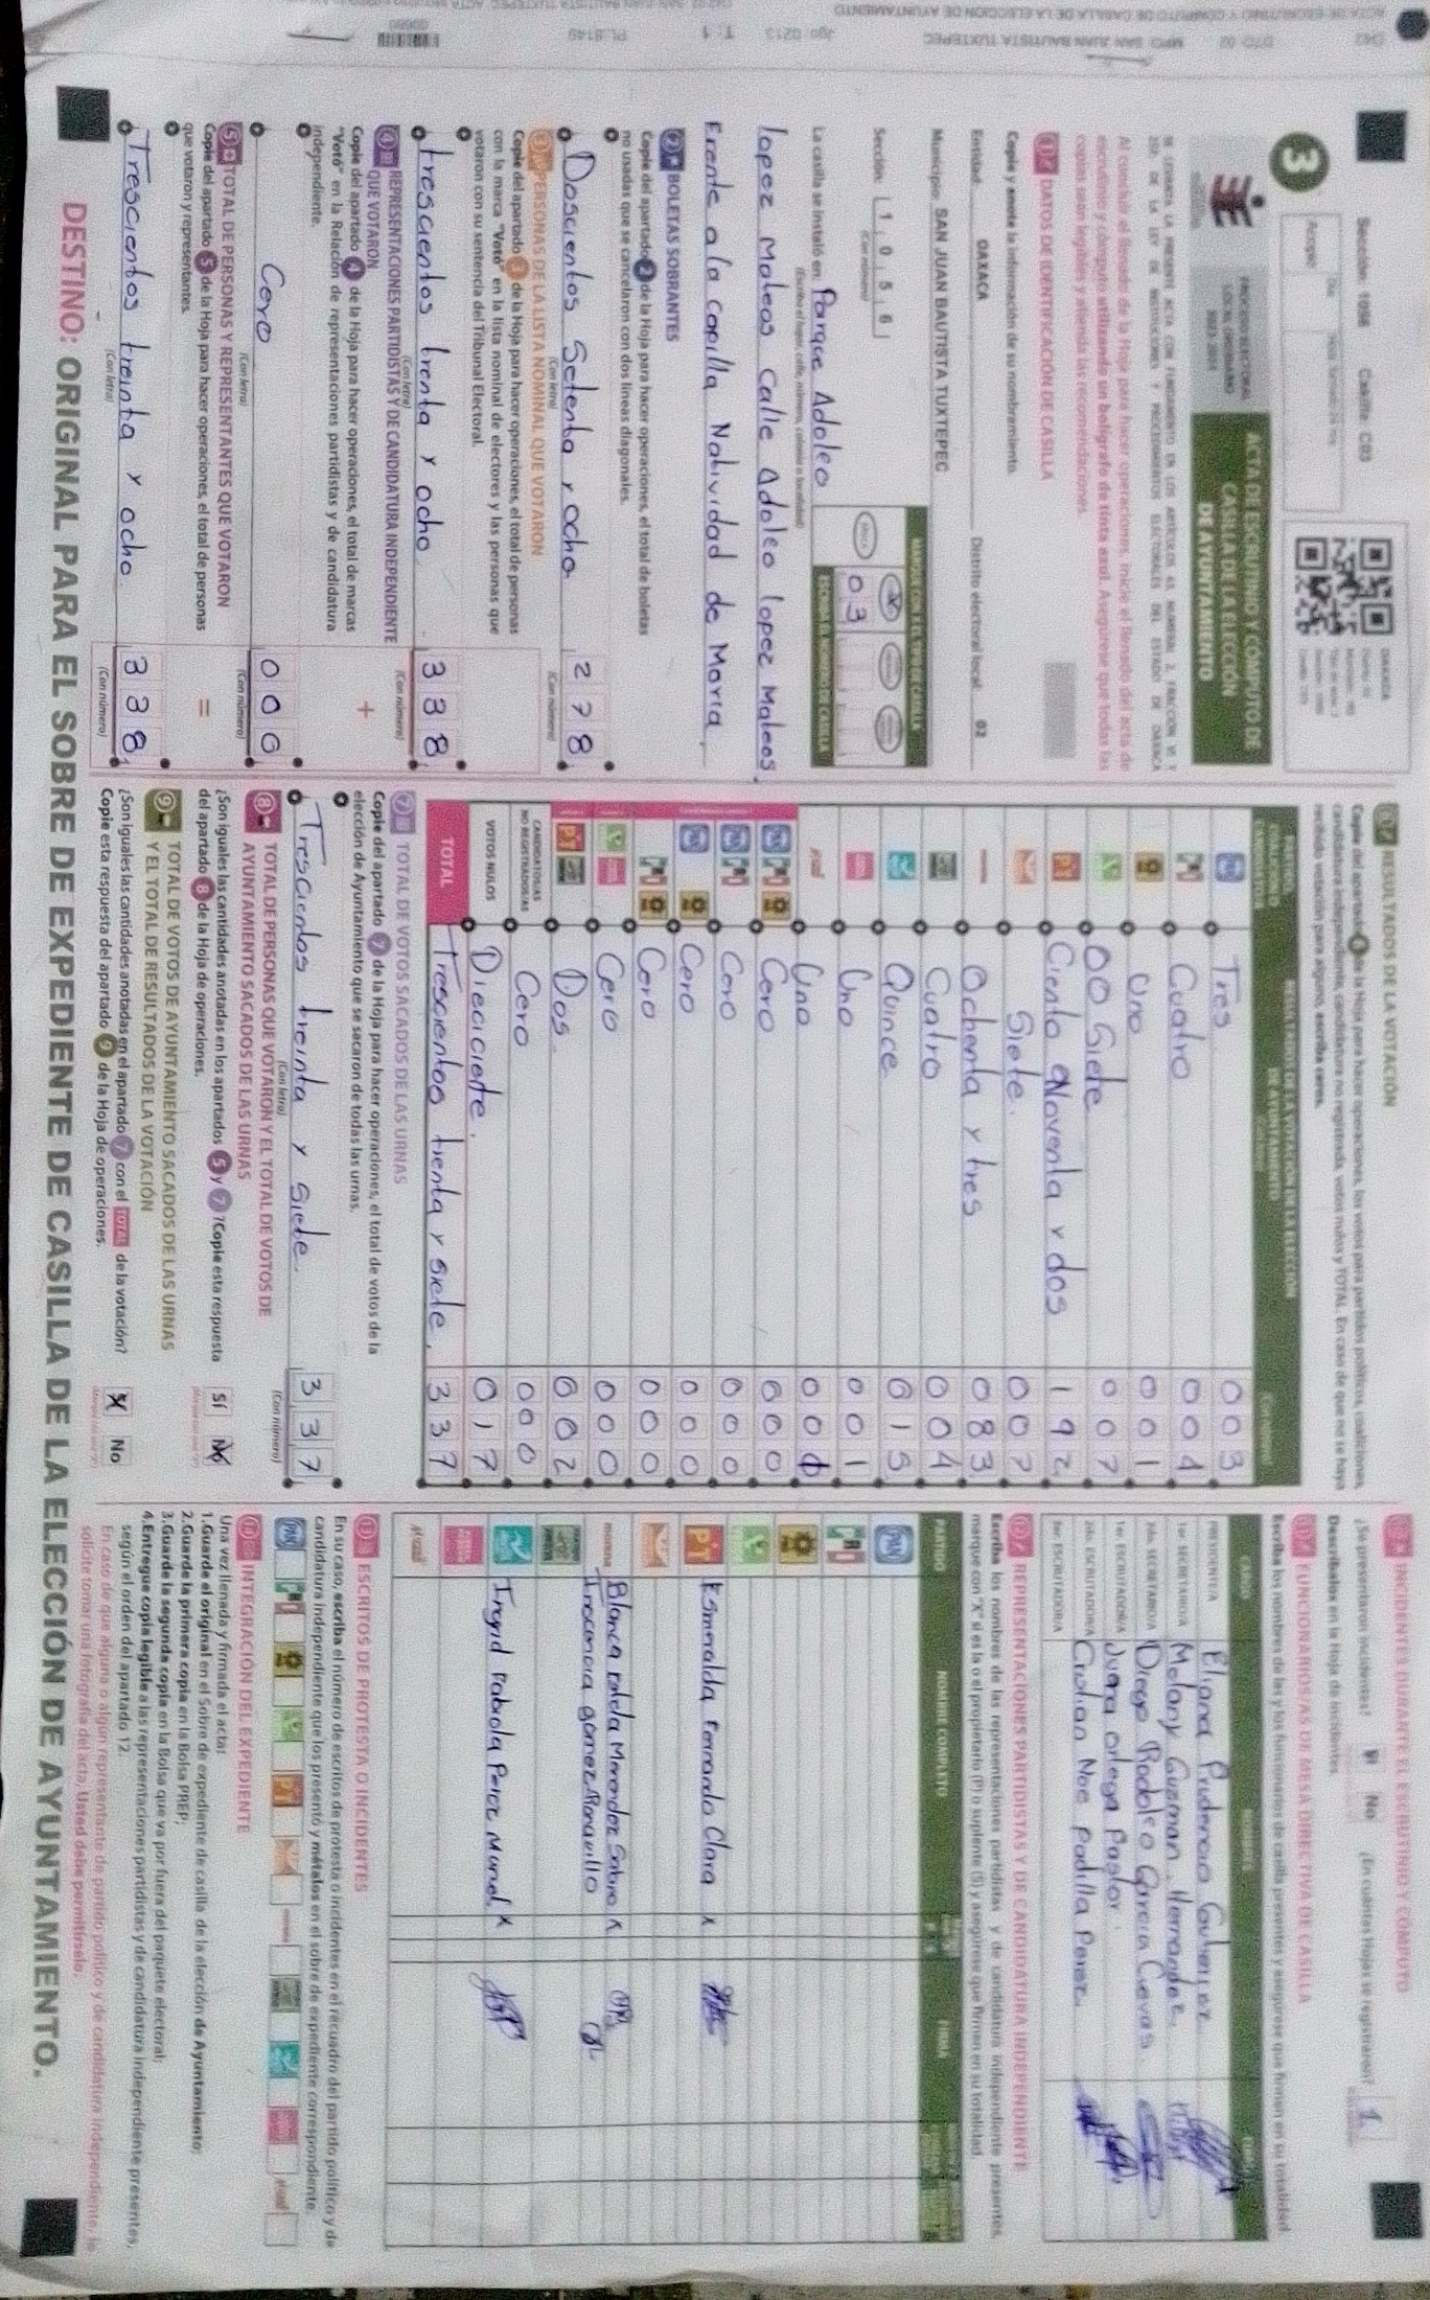 Sección: 1056 Casilla: C03
3
PROCESO ELECTORAL LOCAL ORDINARIO 2023-2024
ACTA DE ESCRUTINIO Y CÓMPUTO DE CASILLA DE LA ELECCIÓN DE AYUNTAMIENTO
Al concluir el llenado de la Hoja para hacer operaciones, inicie el llenado del acta de
escrutinio y cómputo utilizando un bolígrafo de tinta azul. Asegúrese que todas las
copias sean legibles y atienda las recomendaciones.
1 DATOS DE IDENTIFICACIÓN DE CASILLA
Copie y anote la información de su nombramiento.
Entidad: OAXACA Distrito electoral local: 02
Municipio: SAN JUAN BAUTISTA TUXTEPEC
Sección: 1 0 5 6
(Con número)
MARQUE CON X EL TIPO DE CASILLA
ESCRIBA EL NÚMERO DE CASILLA
0 3
La casilla se instaló en: Parque Adolfo
lopez Mateos Calle Adolfo lopez Mateos,
Frente a la Capilla Natividad de Maria,
2 BOLETAS SOBRANTES
Copie del apartado 2 de la Hoja para hacer operaciones, el total de boletas
no usadas que se cancelaron con dos líneas diagonales.
Doscientos Setenta y ocho 2 7 8
(Con letra) (Con número)
3 PERSONAS DE LA LISTA NOMINAL QUE VOTARON
Copie del apartado 3 de la Hoja para hacer operaciones, el total de personas
con la marca "Votó" en la lista nominal de electores y las personas que
votaron con su sentencia del Tribunal Electoral.
trescientos trenta y ocho 3 3 8
(Con letra) (Con número)
4 REPRESENTACIONES PARTIDISTAS Y DE CANDIDATURA INDEPENDIENTE
QUE VOTARON
Copie del apartado 4 de la Hoja para hacer operaciones, el total de marcas
"Votó" en la Relación de representaciones partidistas y de candidatura
independiente.
+
Cero 0 0 0
(Con letra) (Con número)
5 TOTAL DE PERSONAS Y REPRESENTANTES QUE VOTARON
Copie del apartado 5 de la Hoja para hacer operaciones, el total de personas
que votaron y representantes.
=
Trescientos treinta y ocho 3 3 8
(Con letra) (Con número)
RESULTADOS DE LA VOTACIÓN
Copie del apartado 6 de la Hoja para hacer operaciones, los votos para partidos políticos, coaliciones,
candidatura independiente, candidatura no registrada, votos nulos y TOTAL. En caso de que no se haya
recibido votación para alguno, escriba ceros.
RESULTADOS DE LA VOTACIÓN DE LA ELECCIÓN DE AYUNTAMIENTO
PAN Tres 003
PRI Cuatro 004
Uno 001
00 Siete 007
PT Ciento Noventa y dos 192
Siete. 007
Ochenta y tres 083
Cuatro 004
Quince 015
Uno 001
Uno 001
Cero 000
Cero 000
Cero 000
Cero 000
Cero 000
PT Dos 002
CANDIDATOS/AS NO REGISTRADOS/AS Cero 000
VOTOS NULOS Diecisiete. 017
TOTAL Trescientos trenta y siete, 337
7 TOTAL DE VOTOS SACADOS DE LAS URNAS
Copie del apartado 7 de la Hoja para hacer operaciones, el total de votos de la
elección de Ayuntamiento que se sacaron de todas las urnas.
Trescientos treinta y siete. 3 3 7
(Con letra) (Con número)
8 TOTAL DE PERSONAS QUE VOTARON Y EL TOTAL DE VOTOS DE
AYUNTAMIENTO SACADOS DE LAS URNAS
¿Son iguales las cantidades anotadas en los apartados 5 y 7? Copie esta respuesta
del apartado 8 de la Hoja de operaciones. Sí No
9 TOTAL DE VOTOS DE AYUNTAMIENTO SACADOS DE LAS URNAS
Y EL TOTAL DE RESULTADOS DE LA VOTACIÓN
¿Son iguales las cantidades anotadas en el apartado 7 con el TOTAL de la votación?
Copie esta respuesta del apartado 9 de la Hoja de operaciones. No
INCIDENTES DURANTE EL ESCRUTINIO Y CÓMPUTO
¿Se presentaron incidentes? No ¿En cuántas Hojas se registraron? 1
Descríbalos en la Hoja de incidentes.
FUNCIONARIOS/AS DE MESA DIRECTIVA DE CASILLA
Escriba los nombres de las y los funcionarios de casilla presentes y asegúrese que firmen en su totalidad.
CARGO NOMBRE FIRMA
PRESIDENTE/A Eliana Prudencio
1er. SECRETARIO/A Melany Guzman Hernandez
2do. SECRETARIO/A Diego Rodolfo Garcia Cuevas
1er. ESCRUTADOR/A ortega Pastor
2do. ESCRUTADOR/A Cristian Noe Padilla Perez
3er. ESCRUTADOR/A
REPRESENTACIONES PARTIDISTAS Y DE CANDIDATURA INDEPENDIENTE
Escriba los nombres de las representaciones partidistas y de candidatura independiente presentes,
marque con "X" si es la o el propietario (P) o suplente (S) y asegúrese que firmen en su totalidad.
PARTIDO NOMBRE COMPLETO FIRMA
PAN
PRI
PT Esmeralda Ferrando Clara x
morena Blanca
gomez Ronquillo
Fabiola Perez x
ESCRITOS DE PROTESTA O INCIDENTES
En su caso, escriba el número de escritos de protesta o incidentes en el recuadro del partido político y de
candidatura independiente que los presentó y métalos en el sobre de expediente correspondiente.
INTEGRACIÓN DEL EXPEDIENTE
Una vez llenada y firmada el acta:
1.Guarde el original en el Sobre de expediente de casilla de la elección de Ayuntamiento;
2.Guarde la primera copia en la Bolsa PREP;
3.Guarde la segunda copia en la Bolsa que va por fuera del paquete electoral;
4.Entregue copia legible a las representaciones partidistas y de candidatura independiente presentes,
según el orden del apartado 12.
En caso de que alguna o algún representante de partido político y de candidatura independiente, le
solicite tomar una fotografía del acta, Usted debe permitírselo.
DESTINO: ORIGINAL PARA EL SOBRE DE EXPEDIENTE DE CASILLA DE LA ELECCIÓN DE AYUNTAMIENTO.